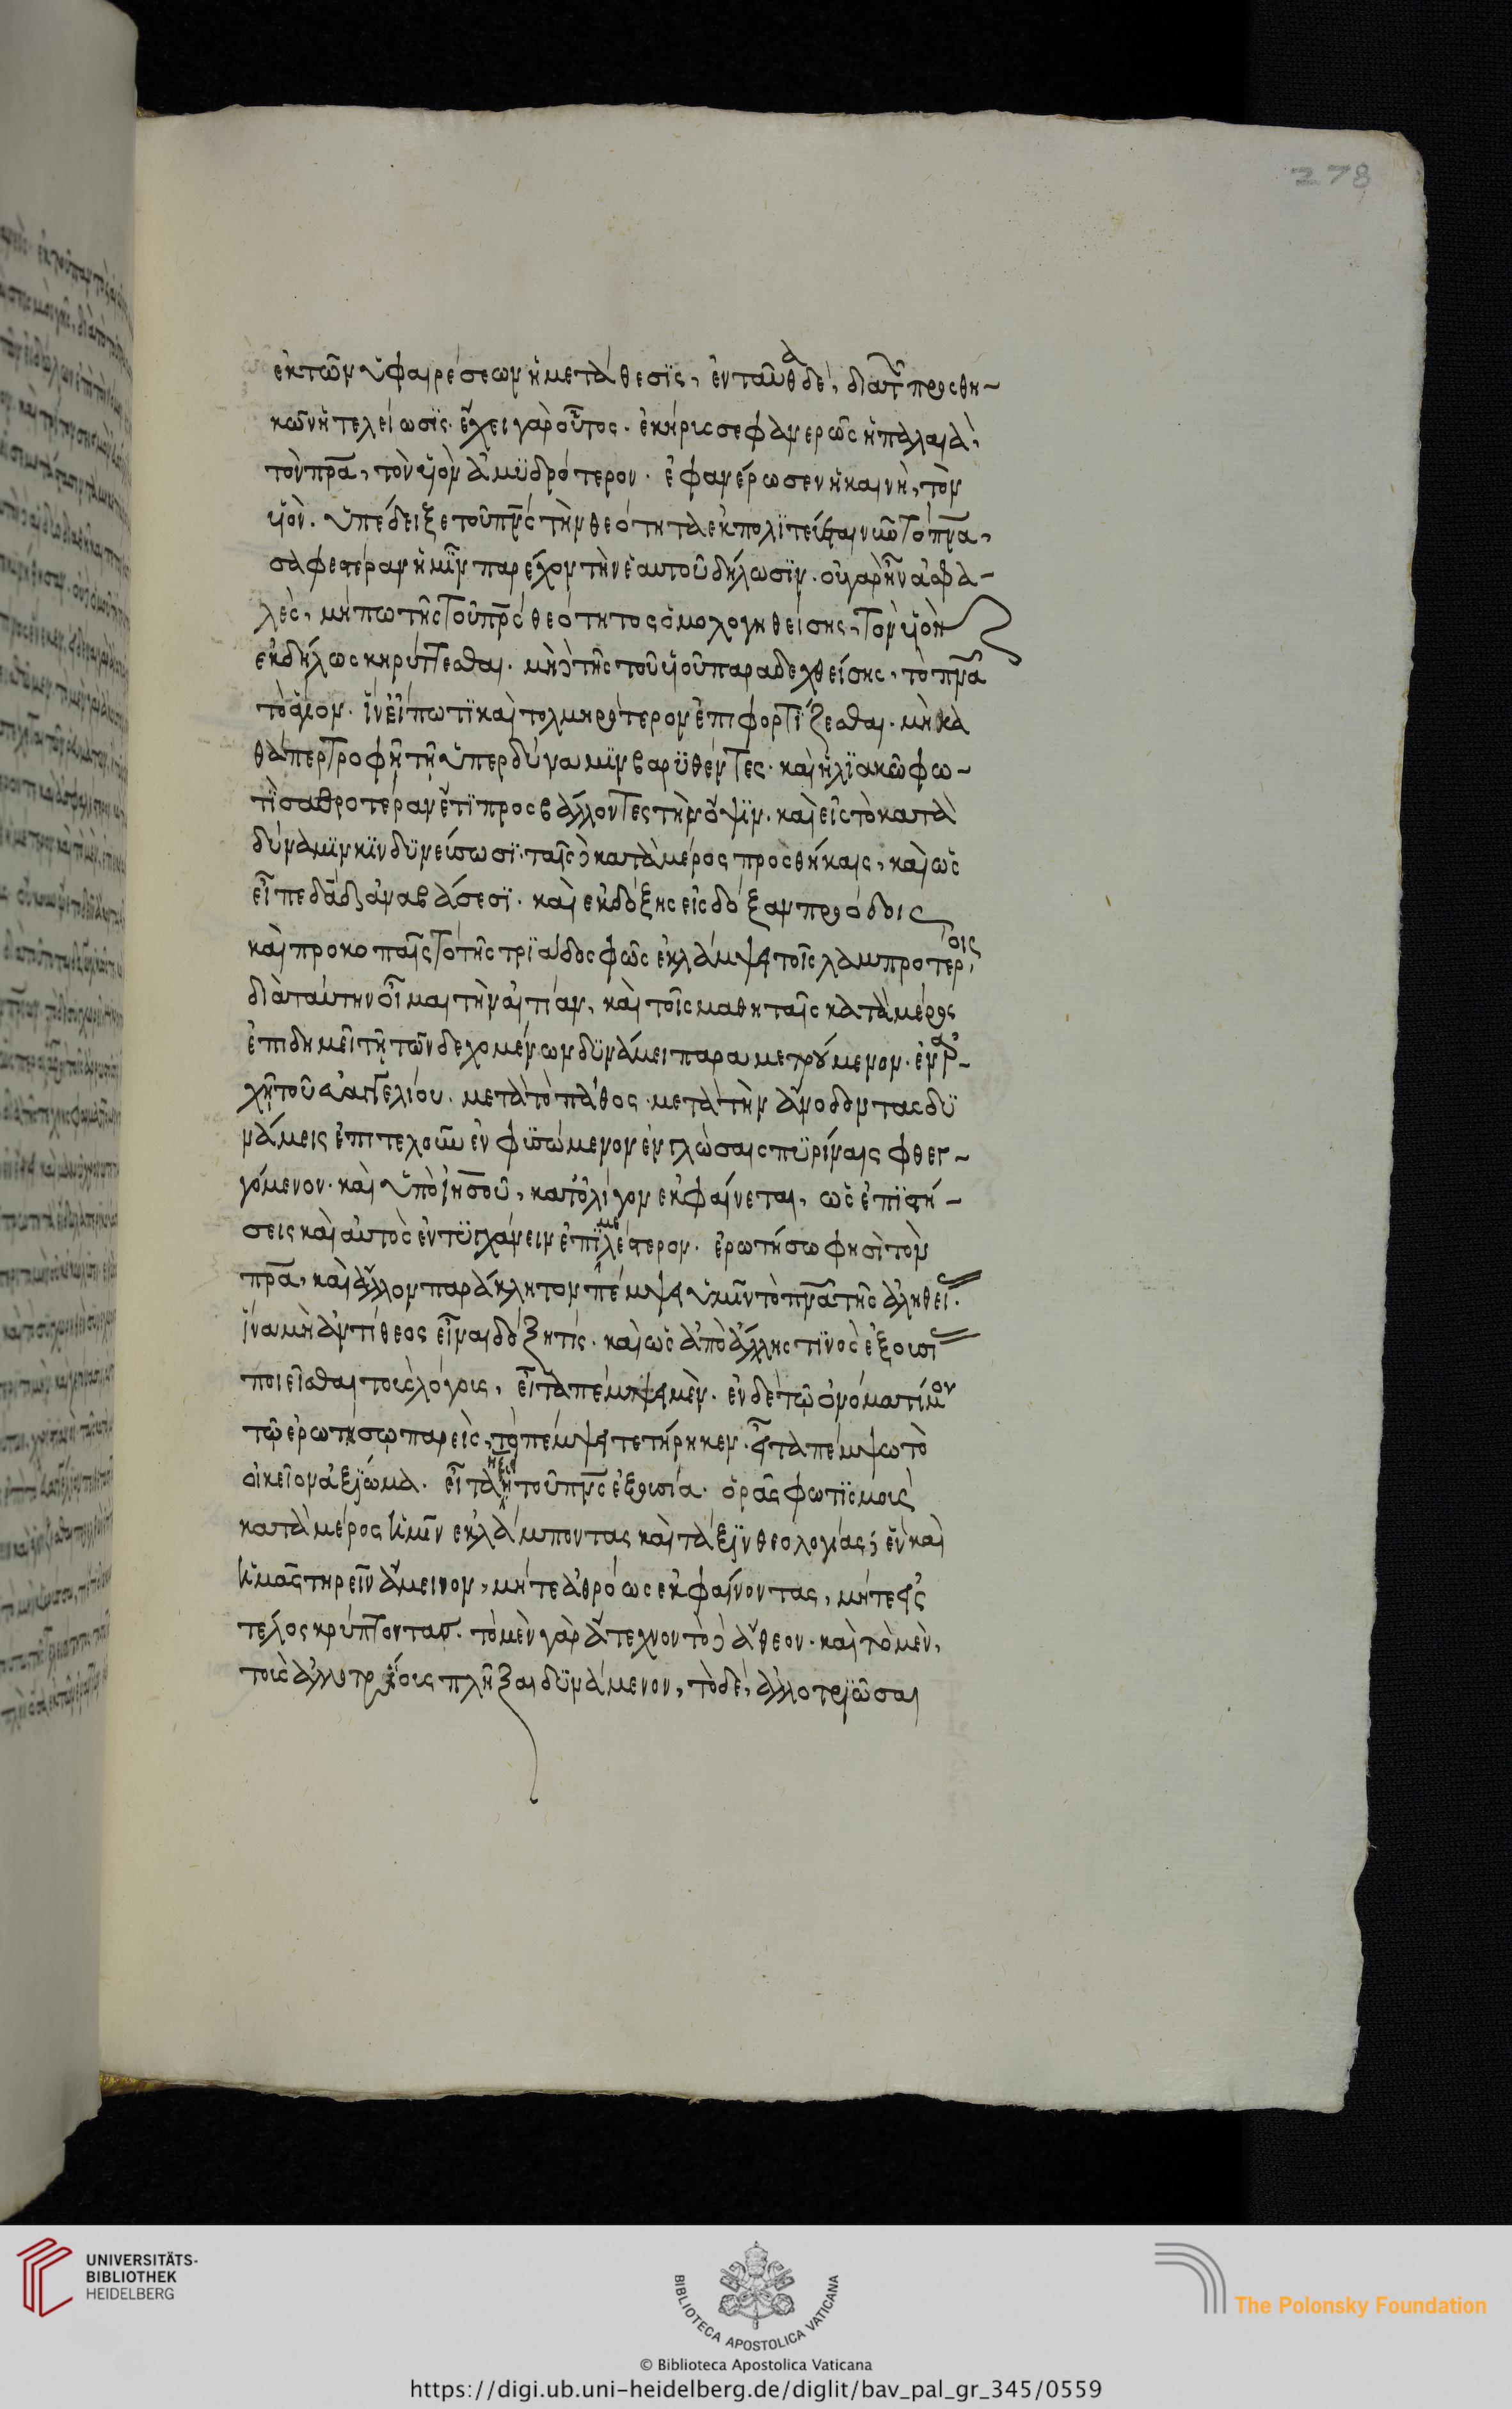 278
ἐκ τῶν ὑφαιρέσεων ἡ μετάθεσϊς, ἐνταῦθα δὲ, διὰ τῶν προσθη-
κῶν ἡ τελείωσϊς. ἔχει γὰρ οὕτος. ἐκήρισσε φανερῶς ἡ παλαιὰ,
τὸν πρα, τὸν υἱὸν ἀμϋδρότερον. ἐφανέρωσεν ἡ καινὴ, τὸν
υἱὸν. ὑπέδειξε τοῦ πνς τὴν θεότητα
σαφεστέραν ἡμῖν παρέχον τὴν ἑαυτοῦ δήλωσϊν. οὐ γὰρ ἦν ἀσφα-
λὲς, μήπω τῆς τοῦ πρς θεότητος ὁμολογηθείσης, τὸν υἱὸν
ἐκδήλως κηρύττεσθαι. μὴ δὲ τῆς τοῦ υἱοῦ παραδεχθείσης, τὸ πνα
τὸ ἅγιον. ἵν' εἴπω τϊ καὶ τολμηρότερον ἐπιφορτίζεσθαι. μὴ κα
θάπερ τροφῆ τῆ ὑπερ δύναμϊν βαρϋθέντες. καὶ ἡλϊακῶ φω-
τὶ σαθροτέραν ἔτϊ προσβάλλοντες τὴν ὄψϊν. καὶ εἰς τὸ κατὰ
δύναμϊν κϊνδϋνεύσωσϊ. ταῖς δὲ κατὰ μέρος προσθήκαις, καὶ ὡς
εἶπε δαδ ἀναβάσεσϊ. καὶ ἐκ δόξης εἰς δόξαν προόδοις
καὶ προκοπαῖς τὸ τῆς τρϊάδος φῶς ἐκλάμψει τοῖς λαμπροτέροις
διὰ ταύτην οἶμαι τὴν αἰτίαν, καὶ τοῖς μαθηταῖς κατὰ μέρος
ἐπιδημεῖ τῆ τῶν δεχομένων δϋνάμει παραμετρούμενον. ἐν ἀρ-
χῆ τοῦ εὐαγγελίου. μετὰ τὸ πάθος. μετὰ τὴν ἄνοδον τὰς δϋ
νάμεις ἐπιτελοῦν ἐνφϋσώμενον ἐν γλώσαις πϋρίναις φθεγ-
γόμενον. καὶ ὑπὸ ἰησοῦ, κατ' ὀλίγον ἐκφαίνεται, ὡς ἐπϊστή-
σεις καὶ αὐτὸς ἐντϋγχάνειν ἐπϊμελέστερον. ἐρωτήσω φησὶ τὸν
πρα, καὶ ἄλλον παράκλητον πέμψει ὑμῖν τὸ πνα τῆς ἀληθεί.
ἵνα μὴ ἀντίθεος εἶναι δόξη τίς. καὶ ὡς ἀπὸ ἄλλης τϊνὸς ἐξουσί
ποιεῖσθαι τοὺς λόγους, εἶτα πέμψει μὲν. ἐν δὲ τῷ ὀνόματί μου
τῶ ἐρωτήσω παρεὶς, τὸ πέμψει τετήρηκεν. εἶτα πέμψω τὸ
οἰκεῖον ἀξίωμα. εἶτα ἥξει ἡ τοῦ πνς ἐξουσία. ὁρᾶς φωτϊσμοὺς
κατὰ μέρος ἡμῖν ἐκλάμποντας καὶ τάξϊν θεολογίας; ἣν καὶ
ἡμᾶς τηρεῖν ἄμεινον, μήτε ἀθρόως ἐκφαίνοντας, μήτε εἰς
τέλος κρύπτοντας. τὸ μὲν γὰρ ἄτεχνον τὸ δὲ ἄθεον. καὶ τὸ μὲν,
τοὺς ἀλλοτρίους πλῆξαι δϋνάμενον, τὸ δὲ, ἀλλοτριῶσαι
UNIVERSITÄTS-
BIBLIOTHEK
HEIDELBERG
BIBLIOTECA APOSTOLICA VATICANA
The Polonsky Foundation
© Biblioteca Apostolica Vaticana
https://digi.ub.uni-heidelberg.de/diglit/bav_pal_gr_345/0559